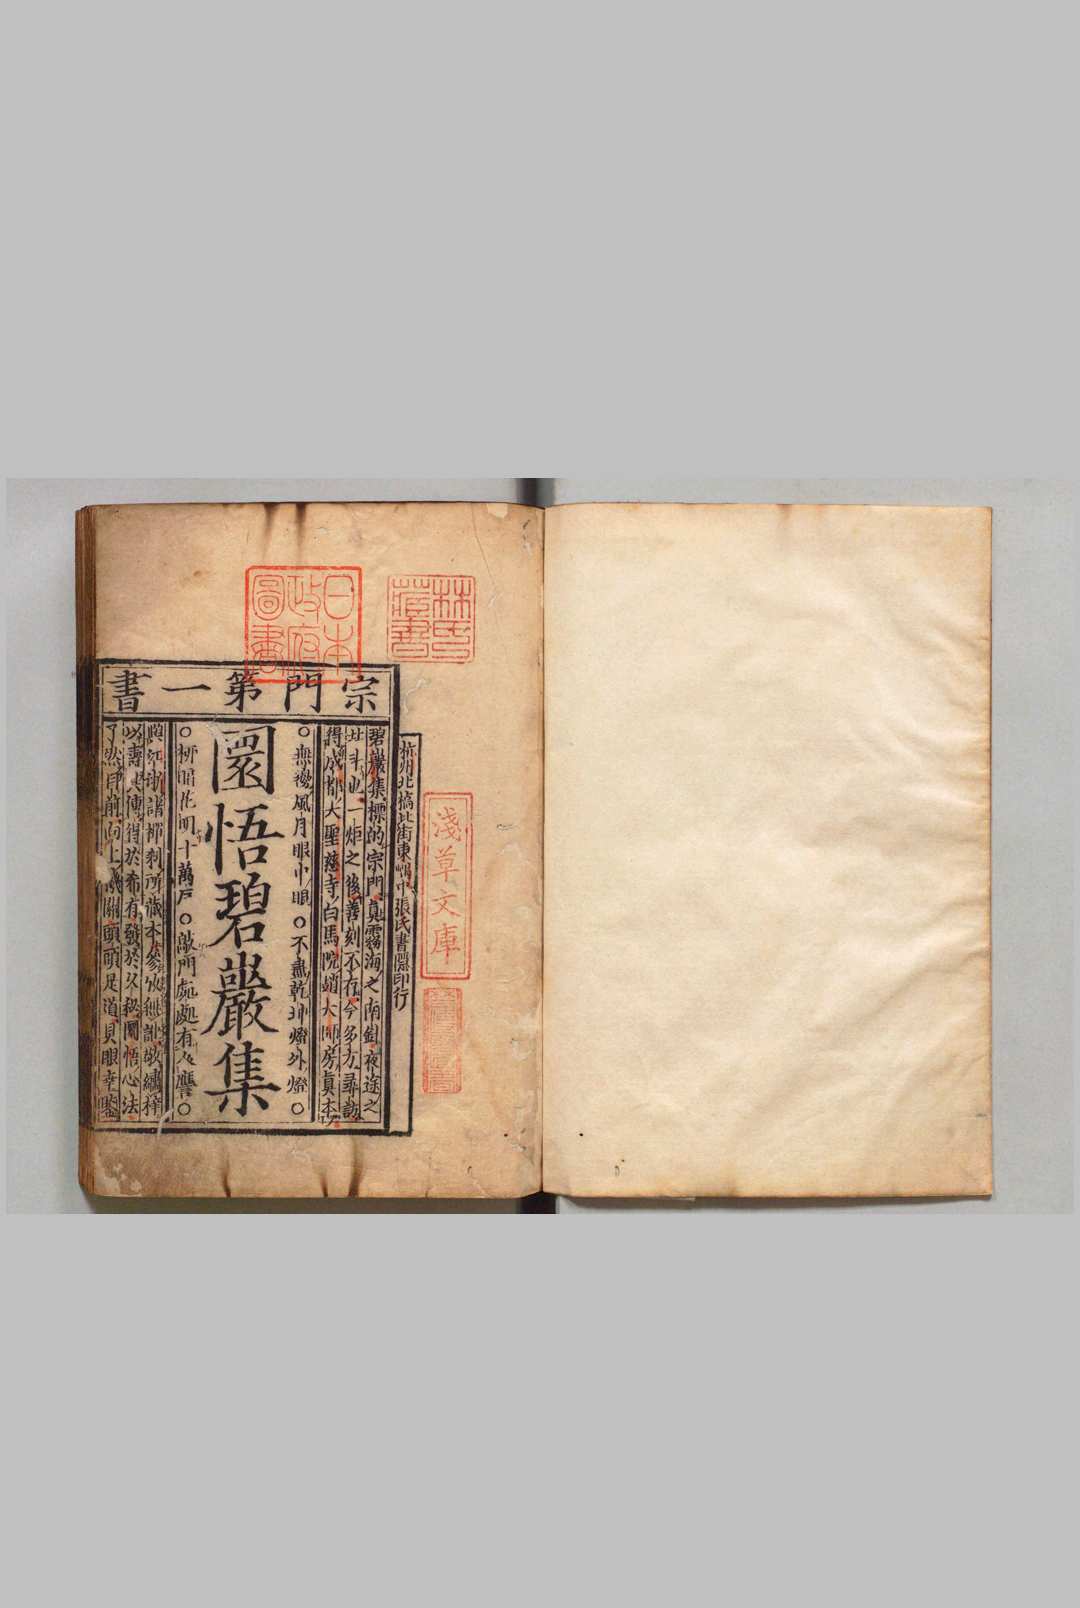 日本
政府
圖書
林氏
藏書
淺草文庫
杭州北橋北街東街中張氏書隱印行
宗門第一書
碧巖集標的宗門真霧海之南針夜途之
北斗也一炬之後善刻不存今多方尋訪
得成都大聖慈寺白馬院趙大師房真本以
○無邊風月眼中眼○不盡乾坤燈外燈○
圜悟碧巖集
○柳暗花明十萬戶○敲門處處有人譍○
與江浙諸禪刹所藏本參攷無訛敬繡梓
以壽其傳得於希有發於久秘圜悟心法
了然目前向上機關頭頭是道具眼幸鑒